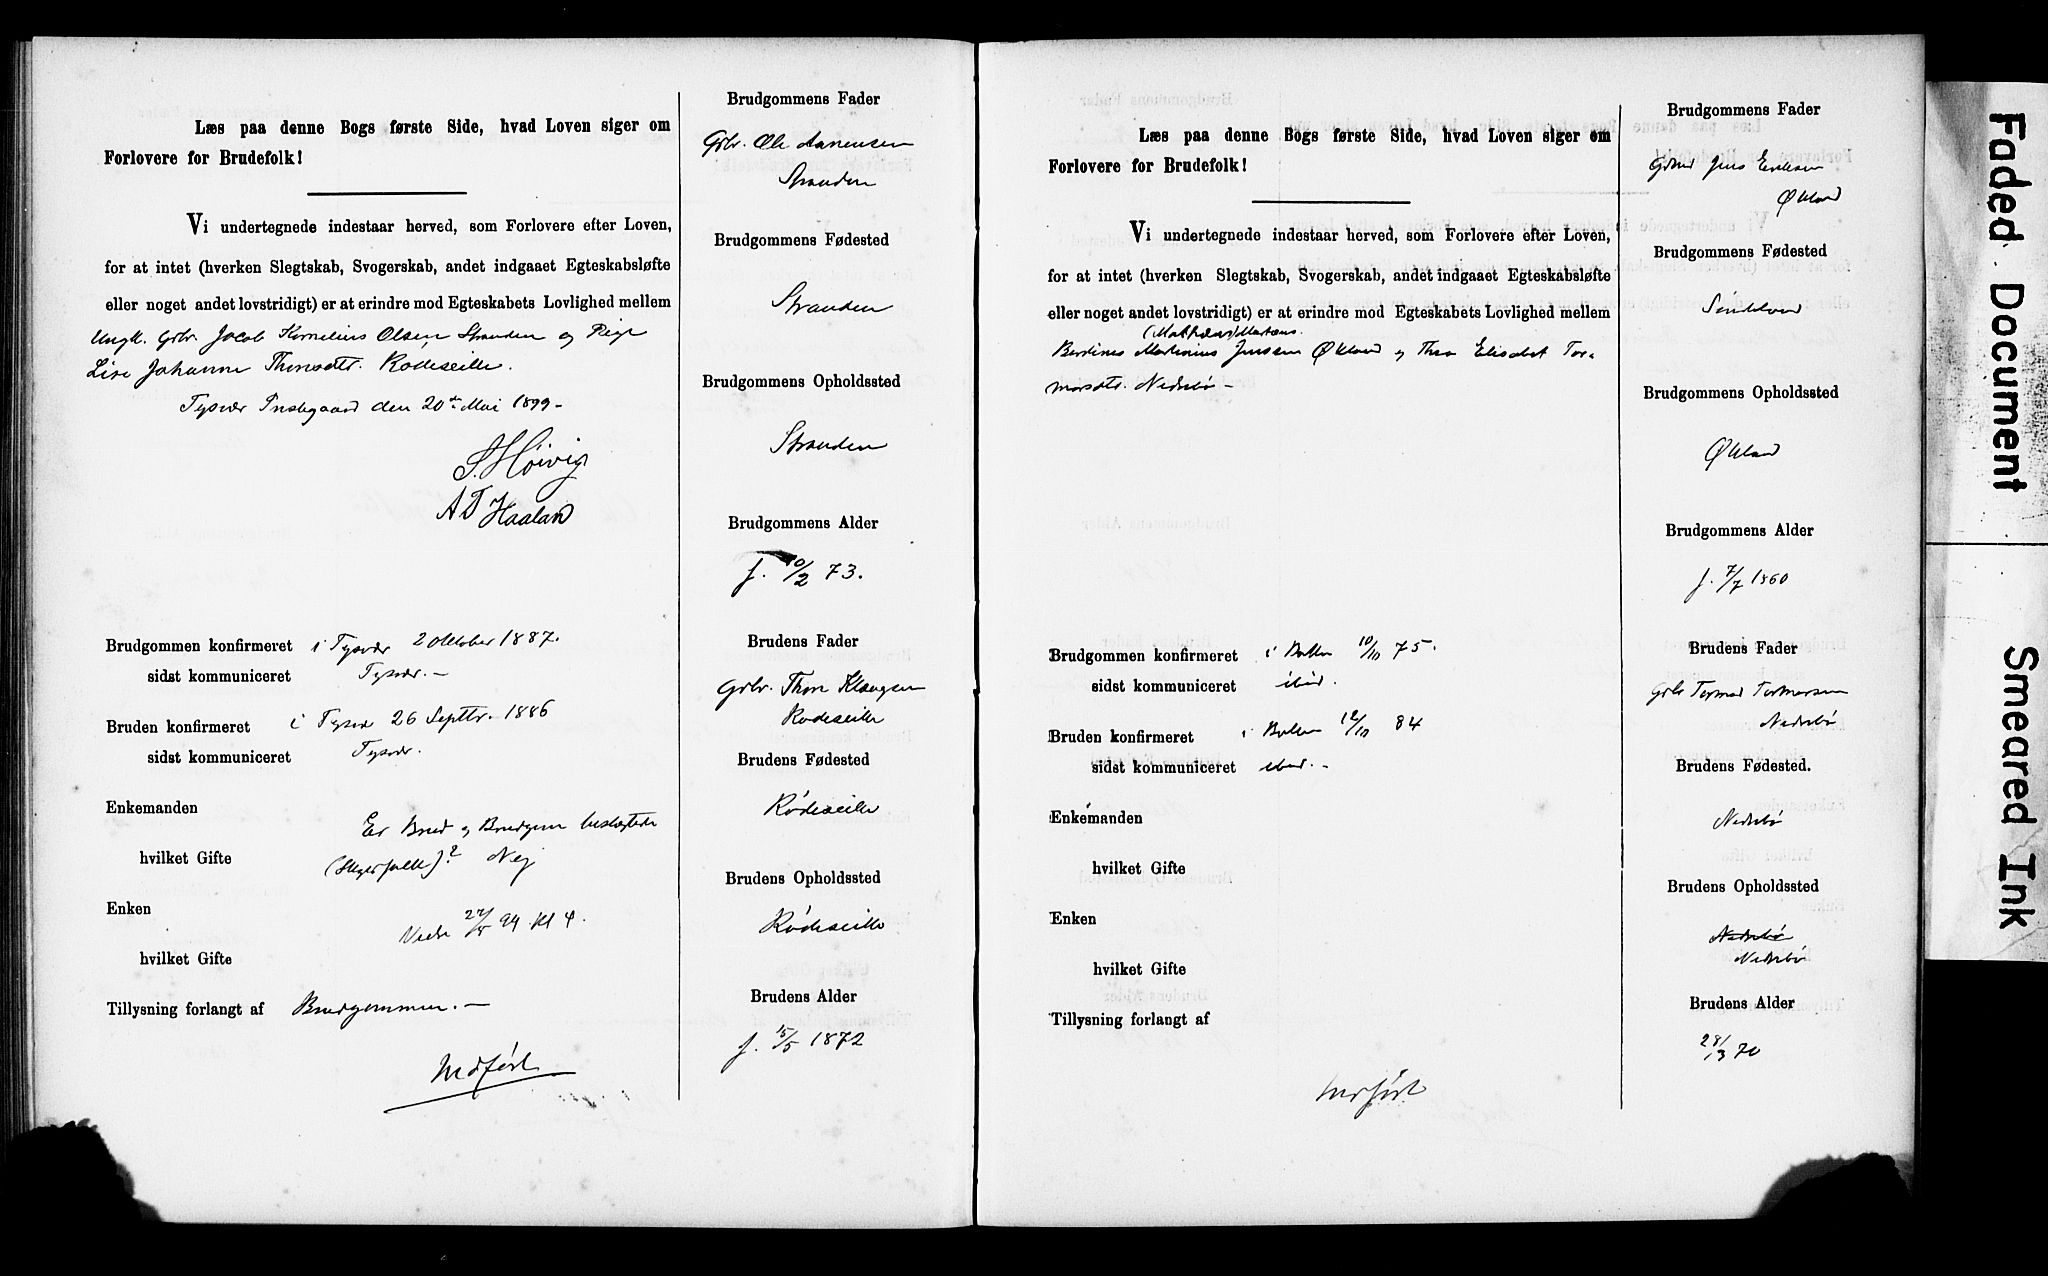 Læs paa denne Bogs første Side, hvad Loven siger om
Forlovere for Brudefolk!
Vi undertegnede indestaar herved, som Forlovere efter Loven,
for at intet (hverken Slegtskab, Svogerskab, andet indgaaet Egteskabsløfte
eller noget andet lovstridigt) er at erindre mod Egteskabets Lovlighed mellem
Ungk. Gbr. Jacob Kornelius Olsen Stranden og Pige
Lise Johanne Thorsdtr. Rødeseille.
Tysvær Prestegaard den 20de Mai 1899 -
S. Høivig
A T Haaland
Brudgommen konfirmeret i Tysvær 2 Oktober 1887.
sidst kommuniceret Tysvær. -
Bruden konfirmeret i Tysvær 26 Septbr. 1886
sidst kommuniceret Tysvær.
Enkemanden
Er Brud og Brudgom beslægtede
hvilket Gifte
? Nej
Enken
Viede 27/5 99 Kl 4.
hvilket Gifte
Tillysning forlangt af Brudgommen. -
Indført
Brudgommens Fader
Gbr. Ole Aanensen
Stranden
Brudgommens Fødested
Stranden
Brudgommens Opholdssted
Stranden
Brudgommens Alder
f. 10/2 73.
Brudens Fader
Gbr. Thor Klaugsen
Rødeseille
Brudens Fødested
Rødeseille
Brudens Opholdssted
Rødeseille
Brudens Alder
f. 15/5 1872
Læs paa denne Bogs første Side, hvad Loven siger om
Forlovere for Brudefolk!
Vi undertegnede indestaar herved, som Forlovere efter Loven,
for at intet (hverken Slegtskab, Svogerskab, andet indgaaet Egteskabsløfte
eller noget andet lovstridigt) er at erindre mod Egteskabets Lovlighed mellem
Berdines Martinius Jenssen Økland og Thea Elisabet Tor-
marsdtr. Nedrebø -
Brudgommen konfirmeret i Bokn 10/10 75.
sidst kommuniceret ibid.
Bruden konfirmeret i Bokn 12/10 84
sidst kommuniceret ibid. -
Enkemanden
hvilket Gifte
Enken
hvilket Gifte
Tillysning forlangt af
Indført
Brudgommens Fader
Gbrd Jens Eriksen
Økland
Brudgommens Fødested
Brudgommens Opholdssted
Økland
Brudgommens Alder
f. 7/7 1860
Brudens Fader
Gbr Tormod Tormorsen
Nedrebø
Brudens Fødested.
Nedrebø
Brudens Opholdssted
Nedrebø
Nedrebø
Brudens Alder
28/13 70
Faded Document
Smeared Ink